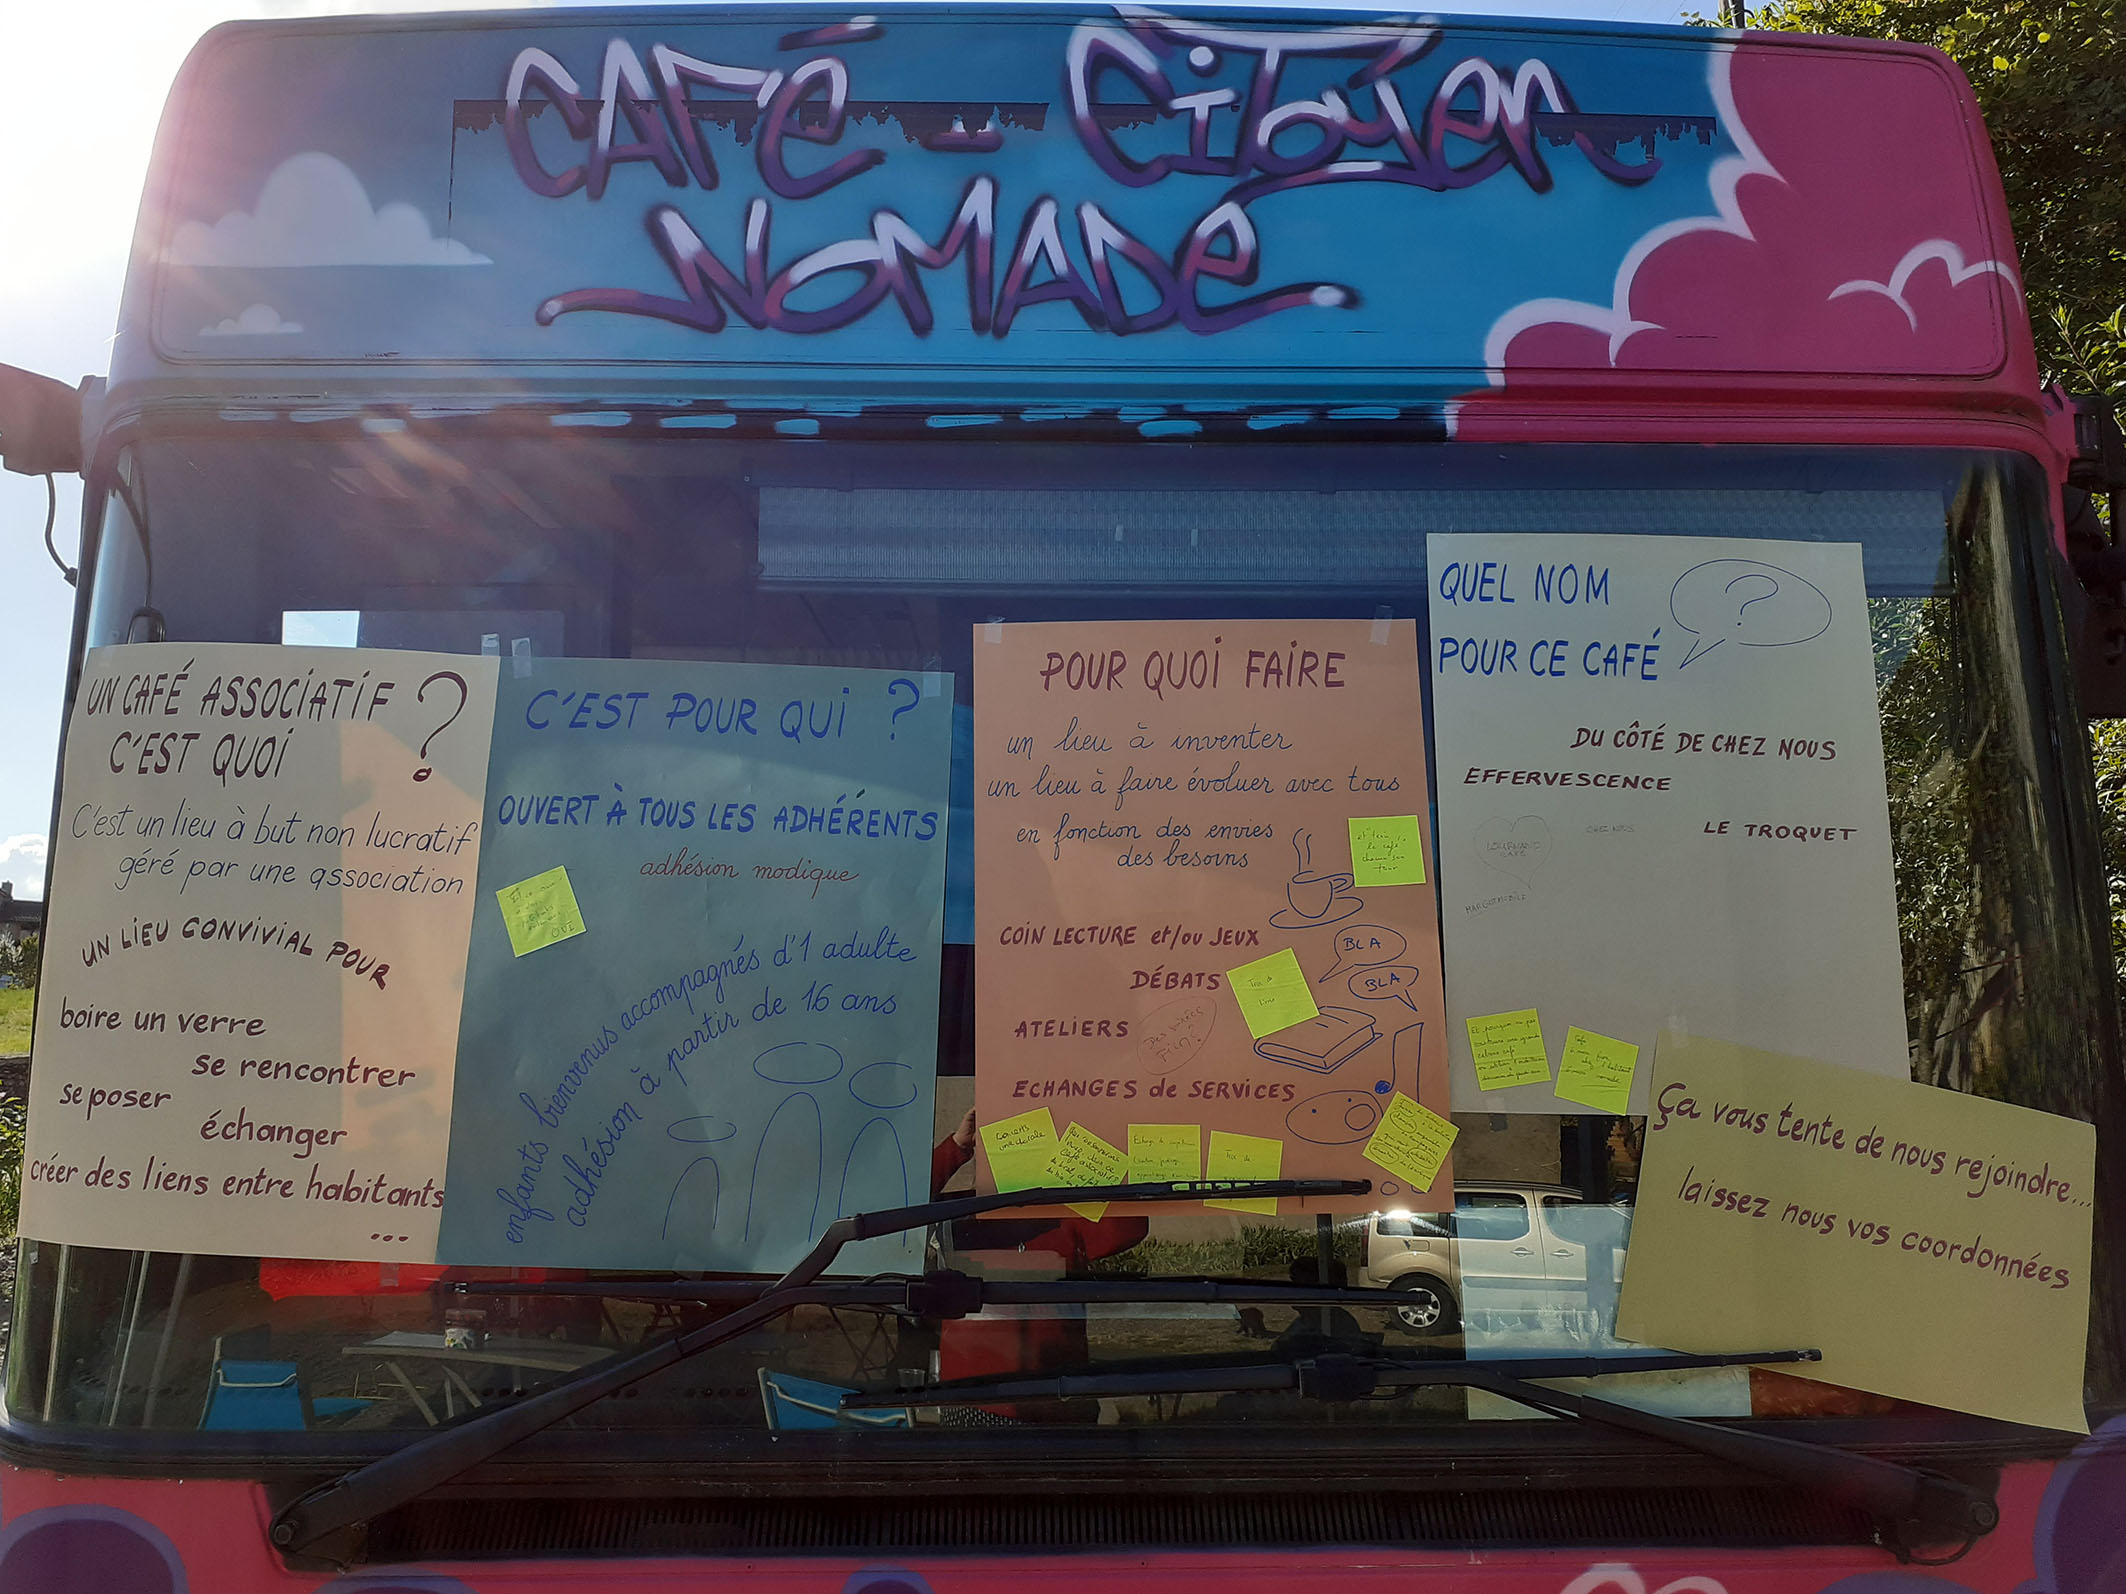 CAFÉ - CiToyen
NOMADe
UN CAFÉ ASSOCIATIF
C'EST QUOI ?
C'est un lieu à but non lucratif
géré par une association
UN LIEU CONVIVIAL POUR
boire un verre
se rencontrer
se poser
échanger
créer des liens entre habitants
...
C'EST POUR QUI ?
OUVERT À TOUS LES ADHÉRENTS
adhésion modique
OUI
enfants bienvenus accompagnés d'1 adulte
adhésion à partir de 16 ans
POUR QUOI FAIRE
un lieu à inventer
un lieu à faire évoluer avec tous
en fonction des envies
des besoins
le café
chacun son
tour
COIN LECTURE et/ou JEUX
BLA
BLA
DÉBATS
Troc de
livres
ATELIERS
Des soirées
Film?
ECHANGES de SERVICES
Troc de
QUEL NOM ?
POUR CE CAFÉ
DU CÔTÉ DE CHEZ NOUS
EFFERVESCENCE
CHEZ NOUS
LE TROQUET
CAFÉ
MARGOTMOBILE
Et pourquoi ne pas
Café
Ça vous tente de nous rejoindre...
laissez nous vos coordonnées